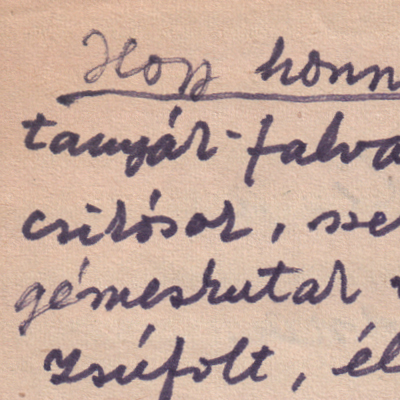 Hopp honn
tanyár-falva
csirósor, sze
gémeskutar
zsúfolt, él